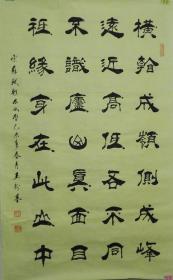 橫看成嶺側成峰
遠近高低各不同
不識廬山真面目
祗緣身在此山中
宋蘇軾